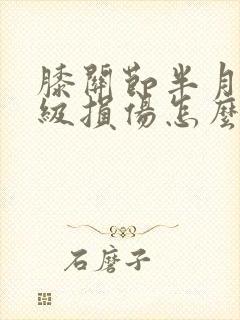 膝關節半月
級損傷怎麼
石磨子